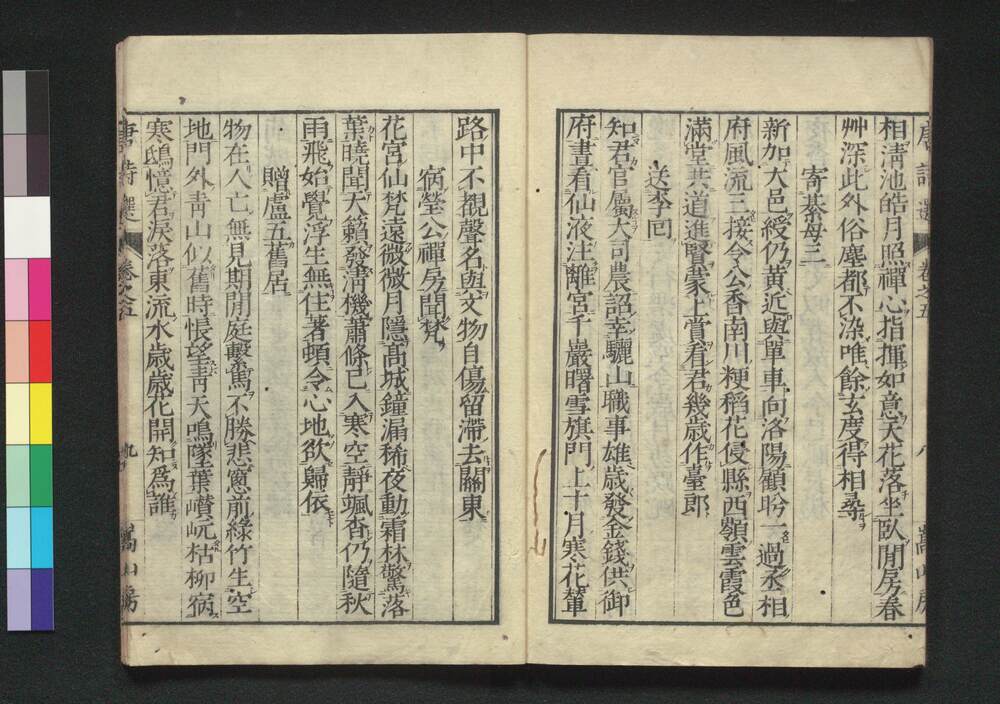 唐詩選 卷之五 八 嵩山房
相淸池皓月照禪心指揮如意天花落坐臥閒房春
艸深此外俗塵都不染唯餘玄度得相尋
寄綦毋三
新加大邑綬仍黃近與單車向洛陽顧昐一過丞相
府風流三接令公香南川粳稻花侵縣西嶺雲霞色
滿堂共道進賢蒙上賞看君幾歲作臺郎
送李回
知君官屬大司農詔幸驪山職事雄歲發金錢供御
府晝看仙液注離宮千巖曙雪旗門上十月寒花輦
路中不覩聲名與文物自傷留滯去關東
宿瑩公禪房聞梵
花宮仙梵遠微微月隱高城鐘漏稀夜動霜林驚落
葉曉聞天籟發淸機蕭條已入寒空靜颯沓仍隨秋
雨飛始覺浮生無住著頓令心地欲歸依
贈盧五舊居
物在人亡無見期閒庭繫馬不勝悲窻前綠竹生空
地門外靑山似舊時悵望靑天鳴墜葉巑岏枯柳宿
寒鴟憶君淚落東流水歲歲花開知爲誰
唐詩選 卷之五 九 嵩山房